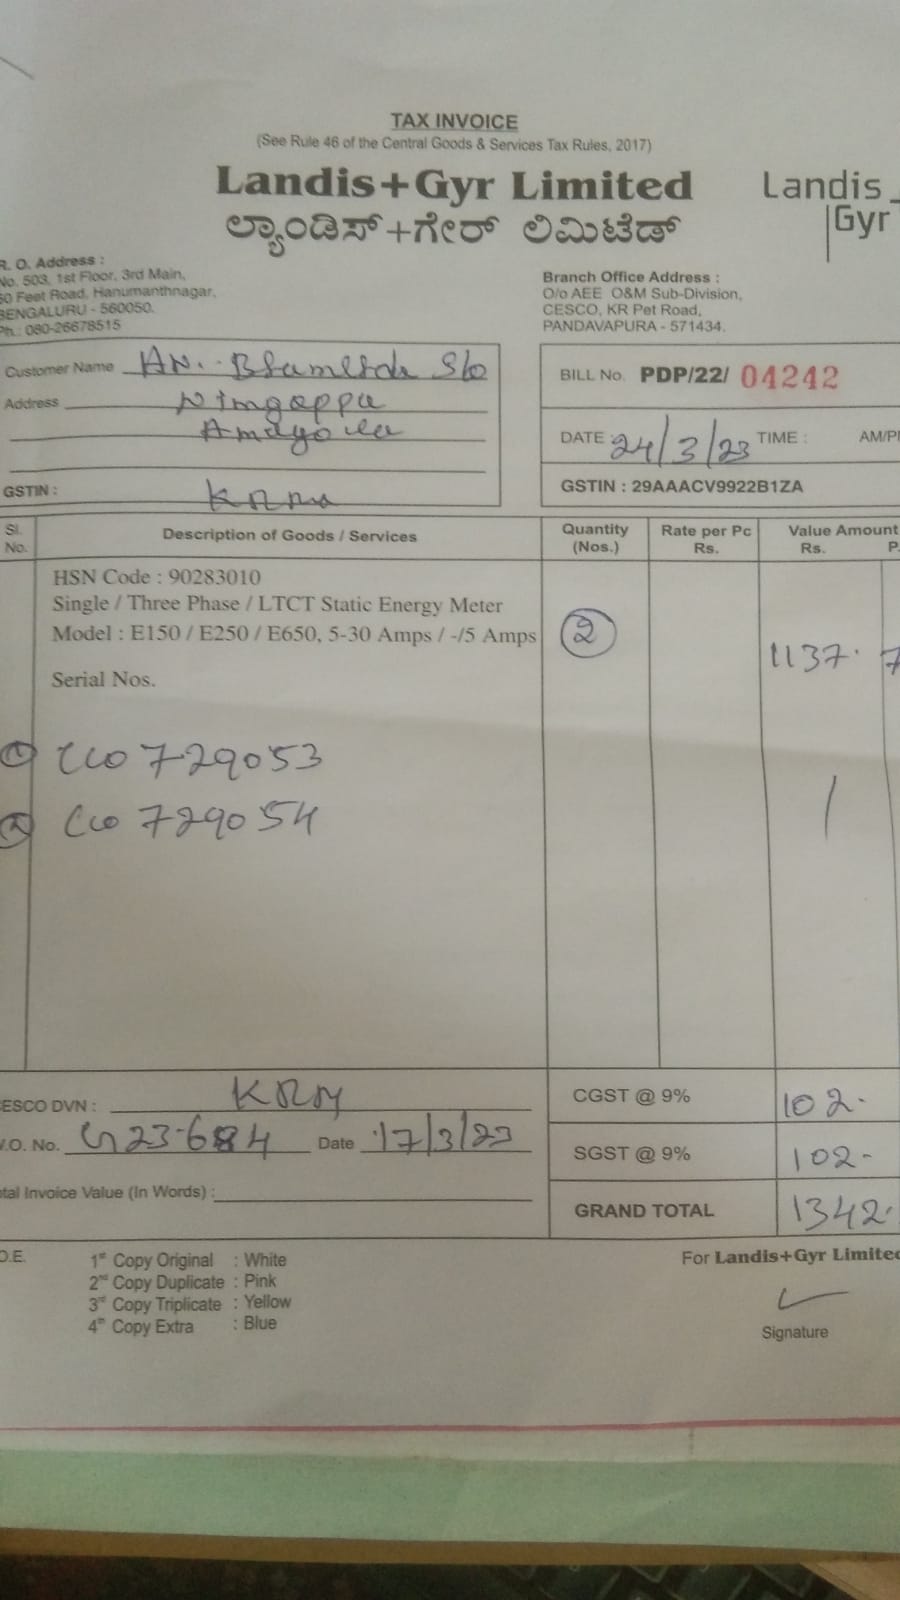 TAX INVOICE
(See Rule 46 of the Central Goods & Services Tax Rules, 2017)
Landis+Gyr Limited
ಲ್ಯಾಂಡಿಸ್+ಗೇರ್ ಲಿಮಿಟೆಡ್
Landis
Gyr
R. O. Address :
No. 503, 1st Floor, 3rd Main,
Feet Road, Hanumanthnagar,
BENGALURU - 560050.
Ph.: 080-26678515
Branch Office Address :
O/o AEE O&M Sub-Division,
CESCO, KR Pet Road,
PANDAVAPURA - 571434.
Customer Name S/o
Address
GSTIN :
BILL No. PDP/22/ 04242
DATE 24/3/23 TIME : AM/P
GSTIN : 29AAACV9922B1ZA
Sl. No. Description of Goods / Services Quantity (Nos.) Rate per Pc Rs. Value Amount Rs. P.
HSN Code : 90283010
Single / Three Phase / LTCT Static Energy Meter
Model : E150 / E250 / E650, 5-30 Amps / -/5 Amps 2 1137. 7
Serial Nos.
1 729053
2 729054
ESCO DVN :
.O. No. Date 17/3/23
tal Invoice Value (In Words) :
CGST @ 9% 102-
SGST @ 9% 102-
GRAND TOTAL 1342.
O.E.
1st Copy Original : White
2nd Copy Duplicate : Pink
3rd Copy Triplicate : Yellow
4th Copy Extra : Blue
For Landis+Gyr Limite
Signature